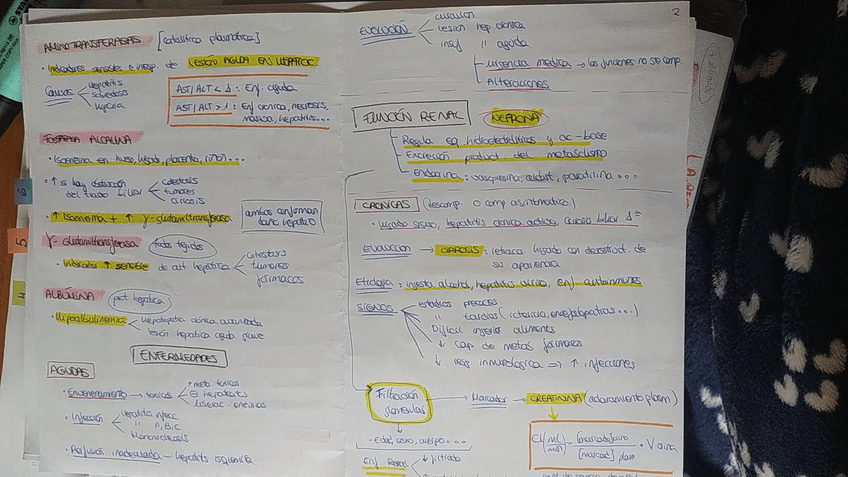 AMINOTRANSFERASAS [catalítica plasmática]
· Indicadores sensibles e inesp. de LESION AGUDA EN HEPATOC
Causas
hepatitis
hipoxia
AST/ALT < 1 : Enf. aguda
AST/ALT > 1 : Enf cronica, necrosis,
masiva, hepatitis...
FOSFATASA ALCALINA
· Isoenzima en hueso, hígado, placenta, riñon...
· ↑ si hay obstrucción
del tracto biliar
colestasis
tumores
cirrosis
· ↑ Isoenzima + ↑ γ-glutamiltransferasa
ambos confirman
daño hepático
γ-glutamiltransferasa
todos tejidos
· Indicador ↑ sensible de alt. hepática
colestasis
tumores
fármacos
ALBÚMINA
prot hepatica
· Hipoalbuminemia
Hepatopatia crónica avanzada
lesión hepatica aguda grave
ENFERMEDADES
AGUDAS
· Envenenamiento → toxicos
· meta. toxicos
⊖ hepatocitos
· Infección
Hepatitis infecc
" A, B, C
Mononucleosis
· Perfusión inadecuada — hepatitis isquémica
2
EVOLUCIÓN
curación
lesión hep. cronica
insuf " aguda
urgencia medica → las funciones no se comp.
Alteraciones
FUNCIÓN RENAL
NEFRONA
Regula eq hidroelectrolitico y ac-base
Excreción product del metabolismo
Endocrina : vasopresina, aldost, paratirina ...
CRONICAS (descomp. o comp asintomatica)
· hígado graso, hepatitis cronica activa, cirrosis biliar 1ª
Evolucion → CIRROSIS : retraccion hígado con desestruct de
su apariencia
Etiologia : ingesta alcohol, hepatitis virica, enf. autoinmunes
SIGNOS
estadios precoces
" tardios (ictericia, encefalopatias...)
Dificil ingerir alimentos
↓ cap. de metab fármacos
↓ resp inmunologica ⇒ ↑ infecciones
Filtración
glomerular
→ Marcador → CREATININA (aclaramiento plasm)
· Edad, sexo, cuerpo...
Enf Renal
↓ filtrado
Cl (ml/min) = [marcador] orina / [marcad] plasm · V orina